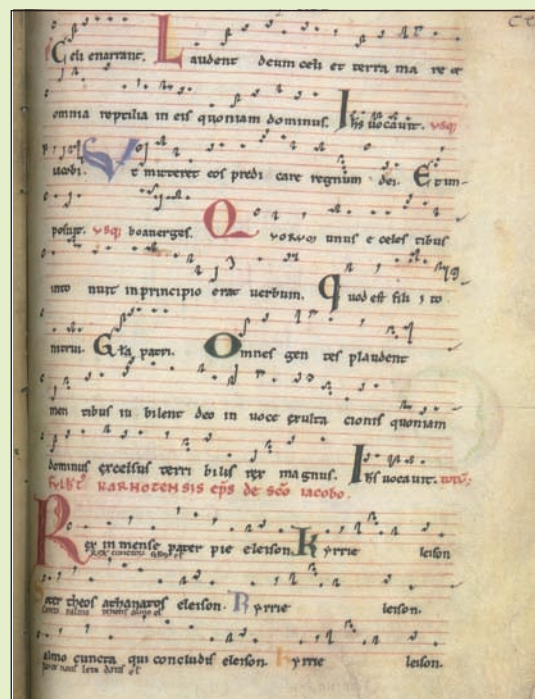 Celi enarrant. Laudent deum celi et terra ma re et
omnia reptilia in eis quoniam dominus. Ihs uocauit. usq;
iacobi. Vt mitteret eos predi care regnum dei. Et im-
posuit. usq; boanerges. QVORVM unus e celes tibus
into nuit in principio erat uerbum. Quod est fili i to
nitrui. Gla patri. Omnes gen tes plaudent
men tibus iu bilent deo in uoce exulta cionis quoniam
dominus excelsus terri bilis rex magnus. Ihs uocauit. totū;
KARNOTENSIS eps de sco iacobo.
Rex in mense pater pie eleison. Kyrrie leison
ater theos athanatos eleison. Kyrrie leison.
almo cuncta qui concludis eleison. Kyrrie leison.